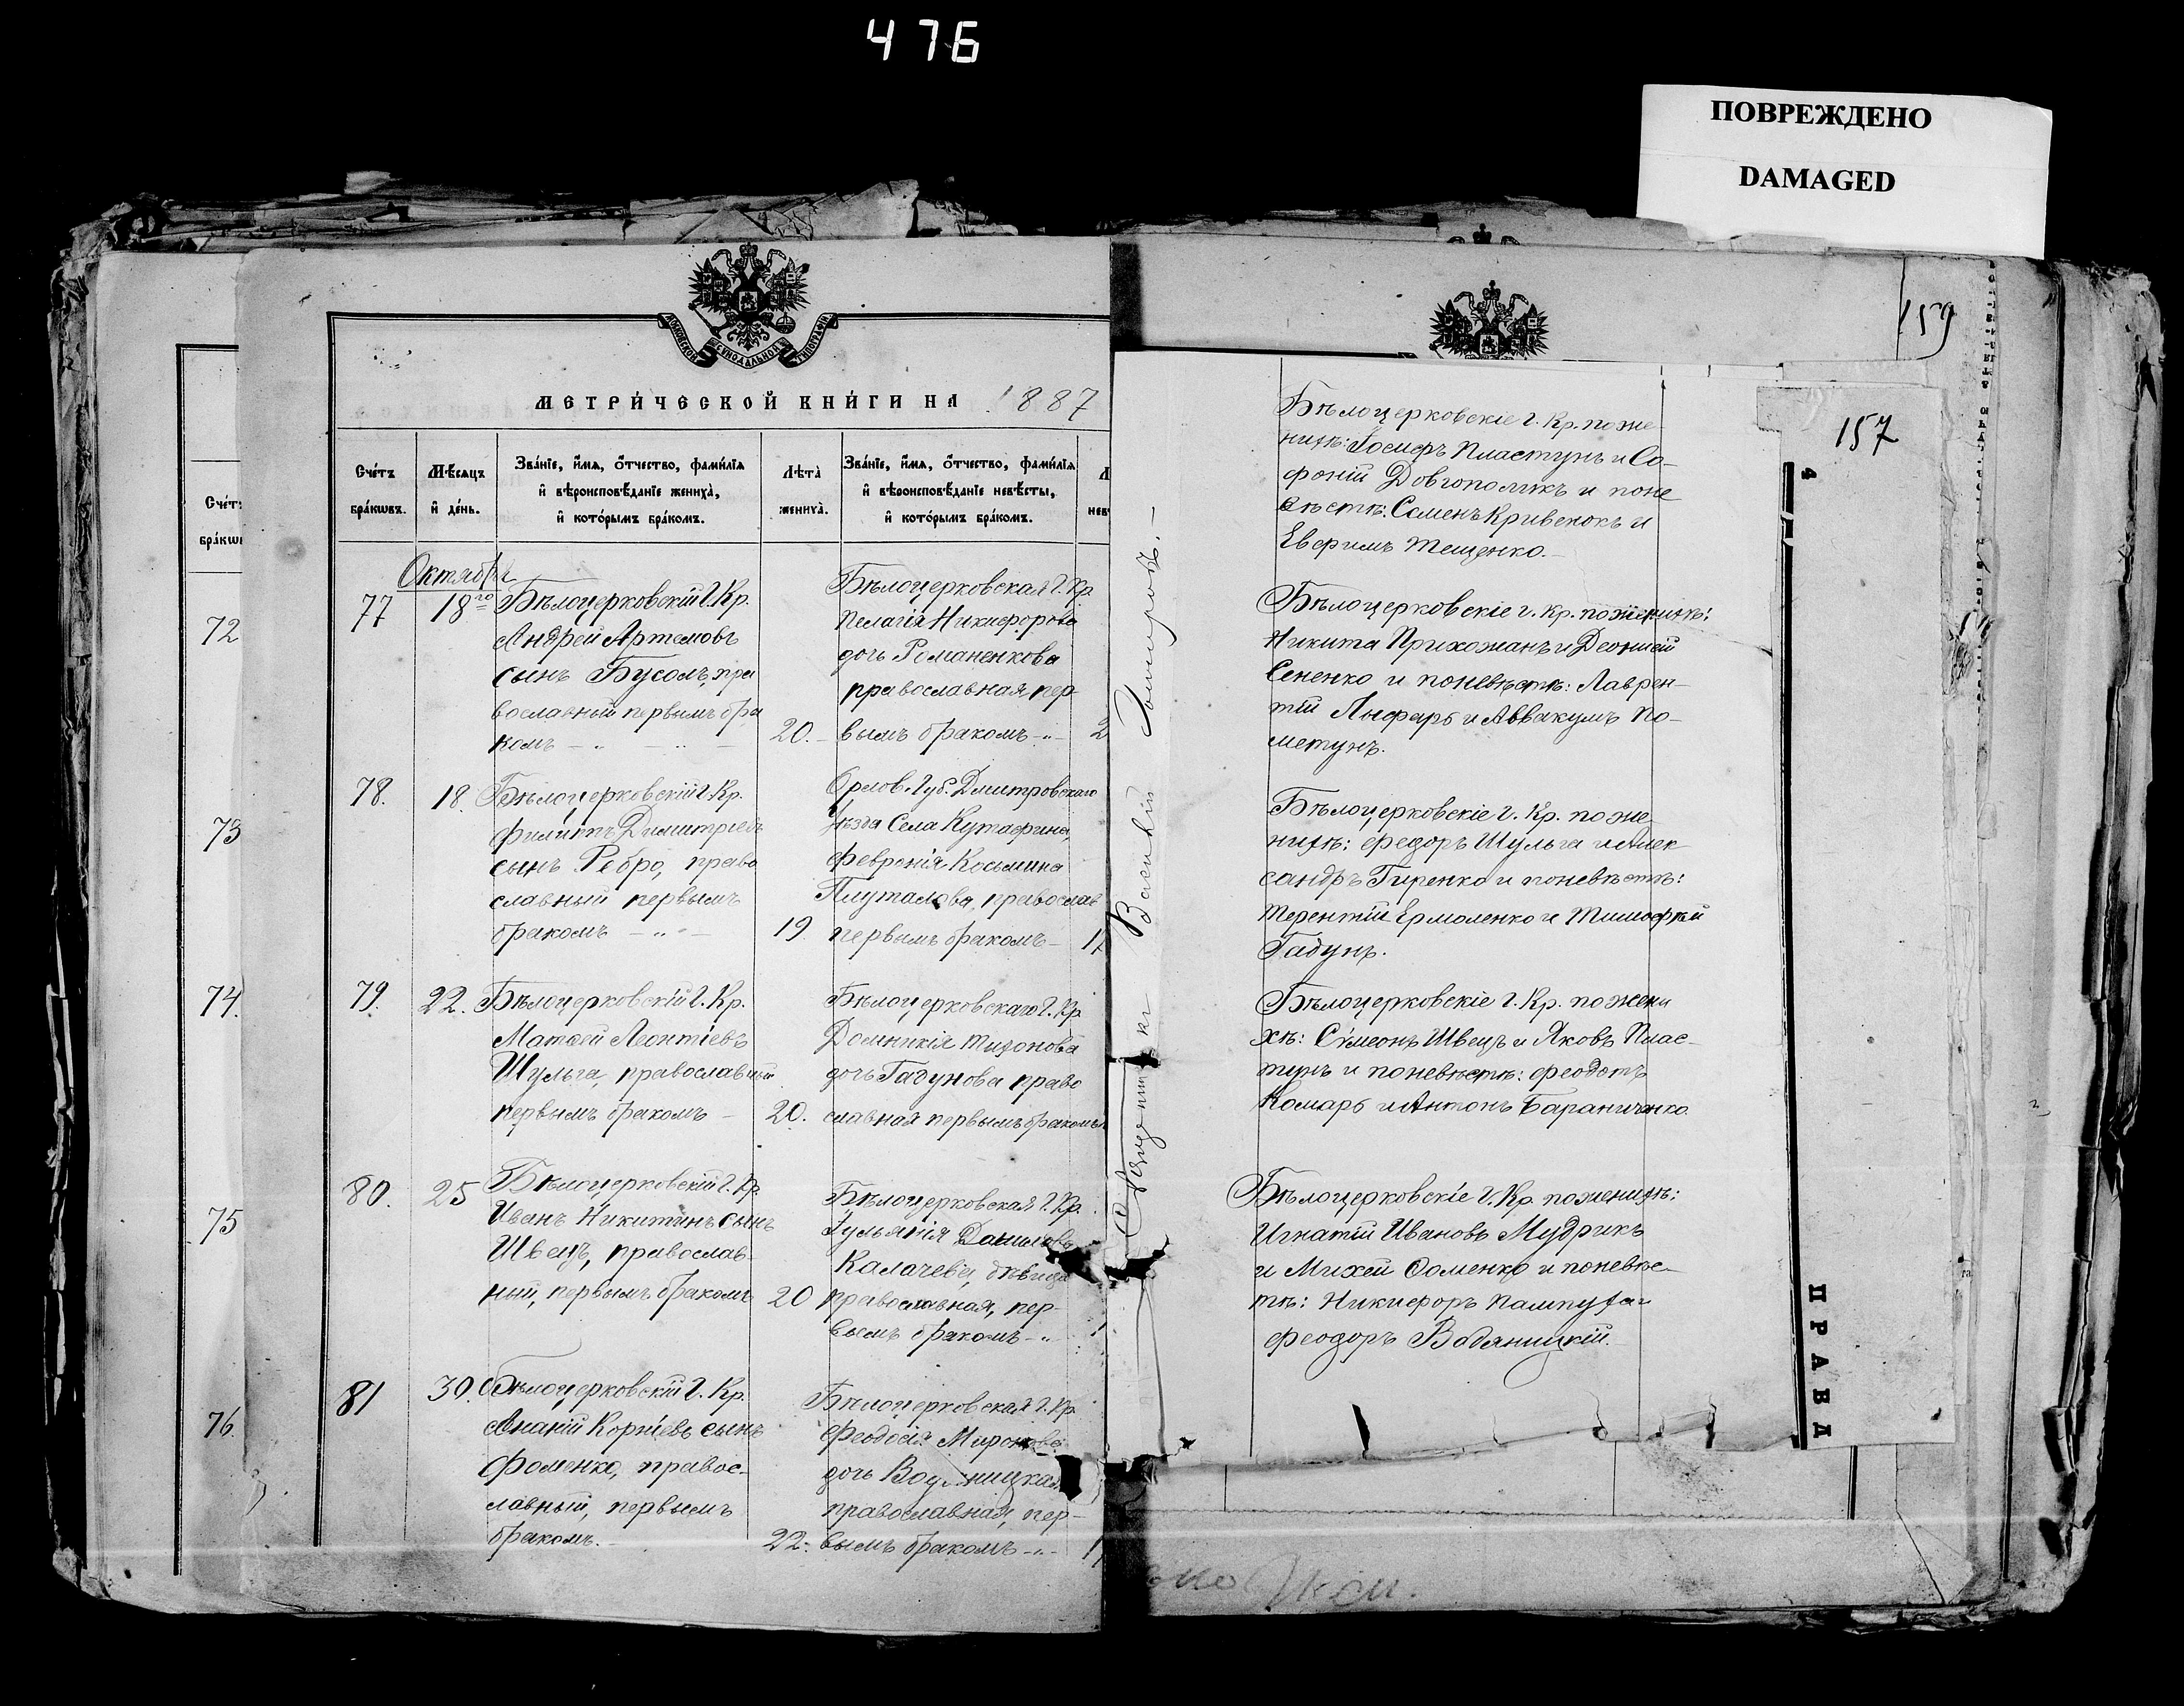 476
ПОВРЕЖДЕНО
DAMAGED
159
157
МОСКОВСКОЙ СѴНОДАЛЬНОЙ ТИПОГРАФІИ
МЕТРИ́ЧЕСКОЙ КНИ́ГИ НА 1887
Сче́тъ бра́кωвъ.
Мѣ́сяцъ и҆ де́нь.
Зва́нїе, и҆́мя, ѻ҆́тчество, фами́лїя
и҆ вѣроисповѣ́данїе жениха̀,
и҆ кото́рымъ бра́комъ.
Лѣта̀ жениха̀.
Зва́нїе, и҆́мя, ѻ҆́тчество, фами́лїя
и҆ вѣроисповѣ́данїе невѣ́сты,
и҆ кото́рымъ бра́комъ.
Сче́т
бра́кω
72
73
74.
75
76.
Октября
77
18го
Бѣлоцерковскій Г. Кр.
Андрей Артемовъ
сынъ Бусолъ, пра
вославный первымъ бра
комъ
20.
Бѣлоцерковская Г. Кр
Пелагія Никифорова
дочь Романенкова
православная пер-
вымъ бракомъ
2
78.
18.
Бѣлоцерковскій Г. Кр.
Филиппъ Димитріевъ
сынъ Ребро, право
славный первымъ
бракомъ
19.
Орлов. Губ. Дмитровскаго
Уѣзда Села Кутафина,
Феврония Косьмина
Плуталова, православ
первымъ бракомъ
17
79.
22.
Бѣлоцерковскій Г. Кр.
Матѳей Леонтіевъ
Шульга, православный
первымъ бракомъ
20.
Бѣлоцерковскаго Г. Кр
Домникія Тихонова
дочь Гадунова право
славная первымъ бракомъ
80.
25
Бѣлоцерковскій Г. Кр.
Иванъ Никитинъ сынъ
Швецъ, православ-
ный, первымъ бракомъ
20
Бѣлоцерковская Г. Кр.
Іульянія Данилова
Калачева, дѣвица
православная, пер-
вымъ бракомъ
1
81
30.
Бѣлоцерковскій Г. Кр.
Ананій Корнѣевъ сынъ
Фоменко, правос-
лавный, первымъ
бракомъ.
22.
Бѣлоцерковская Г. Кр.
Феодосія Миронова
дочь Вод ницкая
православная, пер-
вымъ бракомъ
Священникъ Василій
Бѣлоцерковскіе Г. Кр. по же
нихѣ: Іосифъ Пластунъ и Со-
фоній Довгополикъ и поне
вѣстѣ: Семенъ Кривенокъ и
Евфимъ Тещенко.
Бѣлоцерковскіе г. Кр. по женихѣ:
Никита Прихожанъ и Деонисій
Сененко и поневѣстѣ: Лаврен-
тій Лыфарь и Аввакумъ По-
метунъ.
Бѣлоцерковскіе г. Кр. по же
нихѣ: Федоръ Шульга и Алек
сандръ Гиренко и поневѣстѣ:
Терентій Ермоленко и Тимофей
Гадунъ.
Бѣлоцерковскіе г. Кр. по жени
хѣ: Сѵмеонъ Швецъ и Яковъ Плас-
тунъ и поневѣстѣ: Феодотъ
Комаръ и Антонъ Бараниченко.
Бѣлоцерковскіе Г. Кр. по женихѣ:
Игнатій Ивановъ Мудрикъ
и Михей Фоменко и поневѣс-
тѣ: Никифоръ Пампуха и
Феодоръ Водяницкій.
4
ПРАВД